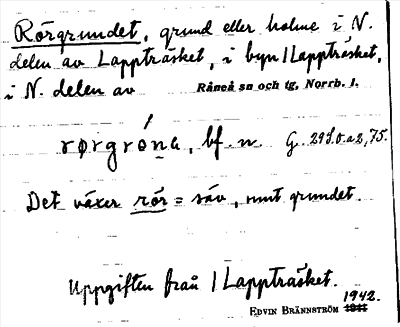 Rörgrundet, grund eller holme i N.
delen av Lappträsket, i byn Lappträsket,
i N. delen av Råneå sn och tg, Norrb. l.
rørgróna, bf. n. G. 29 S.o.a 2, 75.
Det växer rör = säv, runt grundet.
Uppgiften från Lappträsket.
1942.
EDVIN BRÄNNSTRÖM 1941